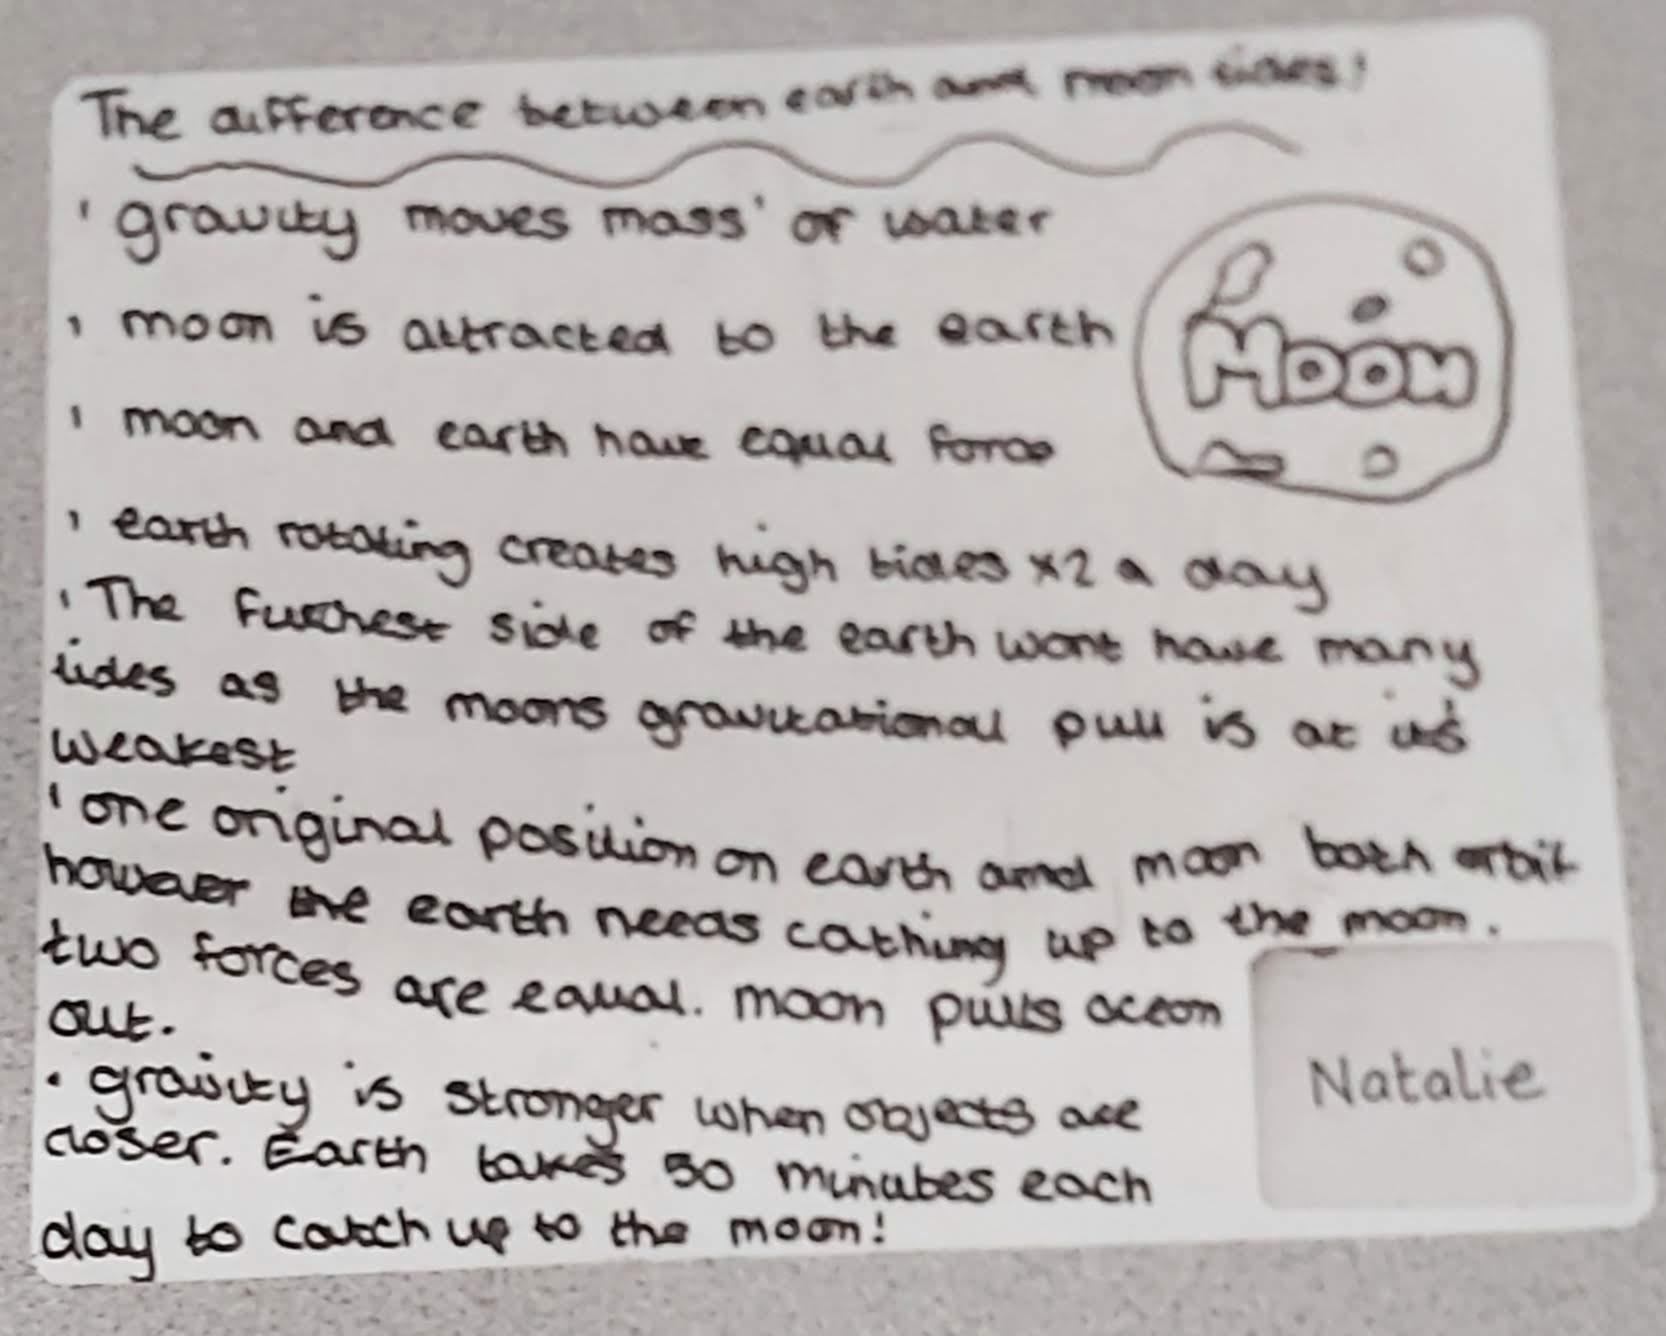 The difference between earth and moon tides!
' gravity moves mass' of water
' moon is attracted to the earth
Moon
' moon and earth have equal force
' earth rotating creates high tides x2 a day
' The furthest side of the earth wont have many
tides as the moons gravitational pull is at it's
weakest
' one original position on earth and moon both orbit
however the earth needs cathing up to the moon.
two forces are equal. moon pulls ocean
out.
• gravity is stronger when objects are
closer. Earth takes 50 minutes each
day to catch up to the moon!
Natalie